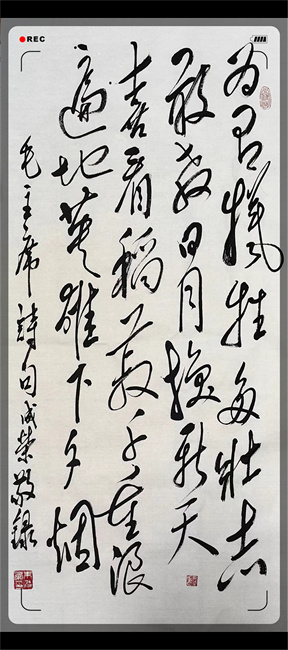 REC
为有牺牲多壮志
敢教日月换新天
喜看稻菽千重浪
遍地英雄下夕烟
毛主席詩句成榮敬錄